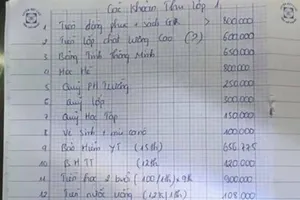 Các Khoản Thu Lớp 1
1 Tiền đồng phục + sách 800000
2 Tiền Lớp chất lượng Cao 600000
3 Bảng Tính Thông Minh 650000
4 Học Hè 800000
5 Quỹ PH Trường 250000
6 Quỹ lớp 300000
7 Quỹ Học Tập 150000
8 Vệ Sinh 100000
9 Bảo Hiểm YT (15th) 656.775
10 BHTT (12th) 120.000
11 Tiền học 2 buổi (100/1th) x 9th 900000
12 Tiền nước uống (12K/1th) 108.000